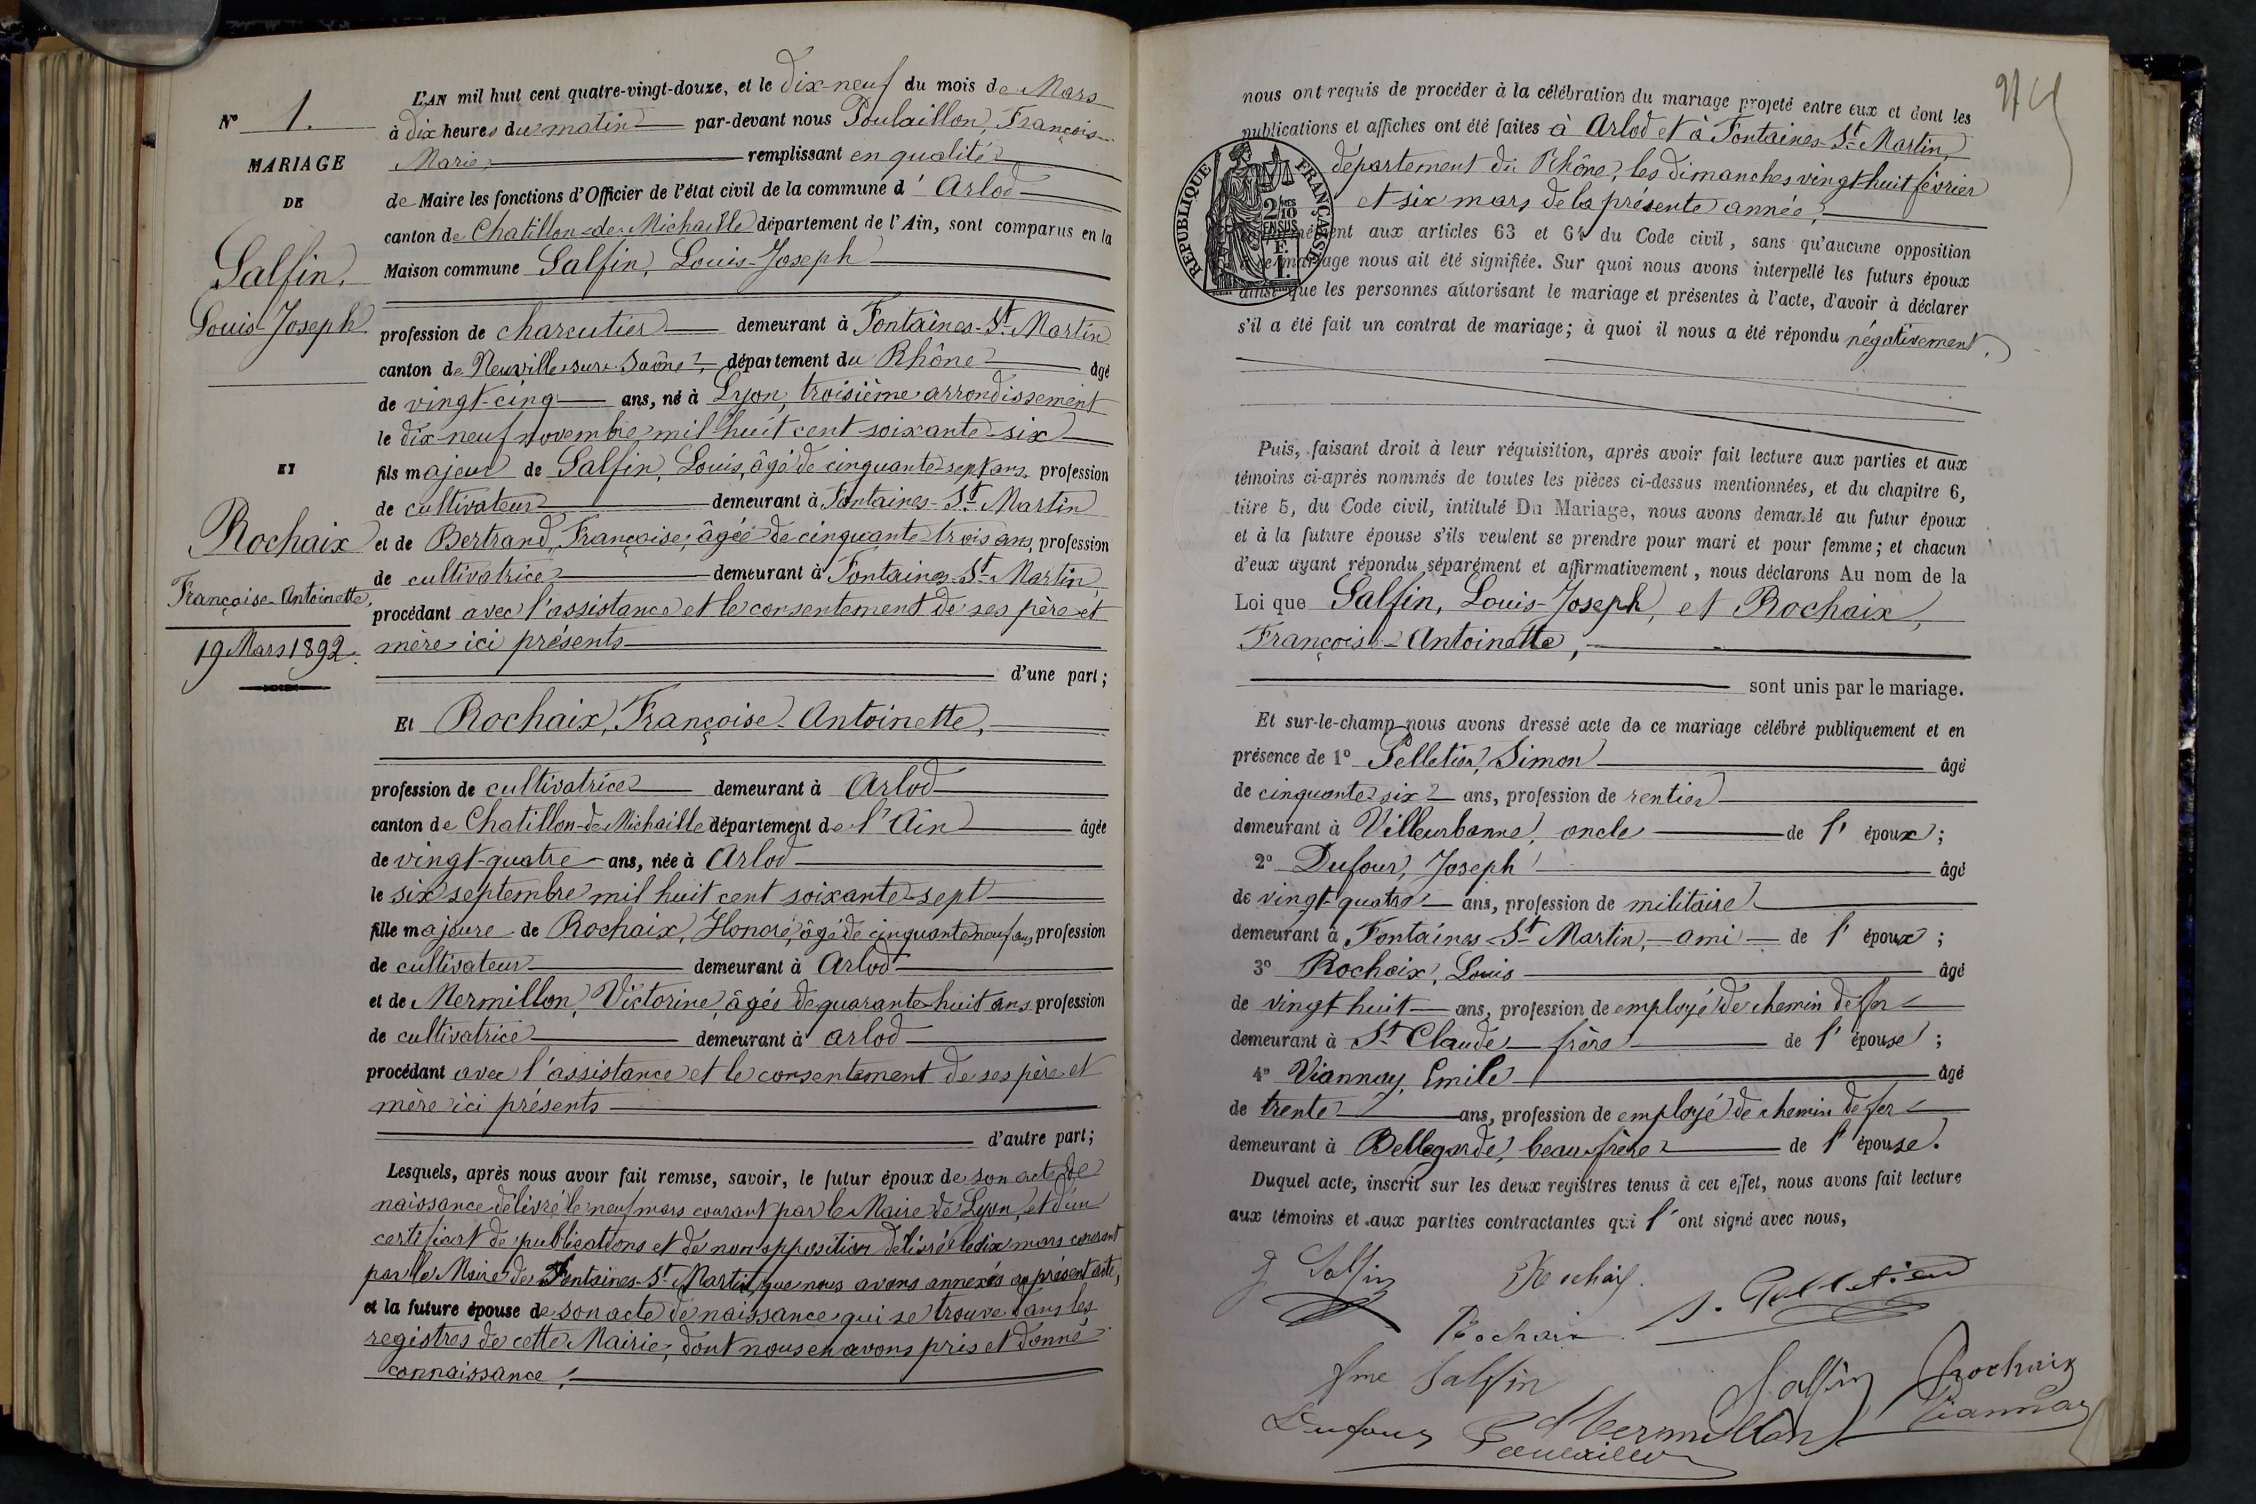 N° 1.
MARIAGE
DE
Salfin,
Louis-Joseph
ET
Rochaix
Françoise-Antoinette,
19 Mars 1892.
L'AN mil huit cent quatre-vingt-douze, et le dix-neuf du mois de Mars
à dix heures du matin par-devant nous Poulaillon, François-
Marie, remplissant en qualité
de Maire les fonctions d'Officier de l'état civil de la commune d' Arlod
canton de Chatillon-de-Michaille département de l'Ain, sont comparus en la
Maison commune Salfin, Louis-Joseph
profession de charcutier demeurant à Fontaines-St-Martin
canton de Neuville-sur-Saône, département du Rhône âgé
de vingt-cinq ans, né à Lyon, troisième arrondissement
le dix-neuf novembre mil huit cent soixante-six
fils majeur de Salfin, Louis, âgé de cinquante-sept ans, profession
de cultivateur demeurant à Fontaines-St-Martin
et de Bertrand, Françoise, âgée de cinquante trois ans, profession
de cultivatrice demeurant à Fontaines-St-Martin,
procédant avec l'assistance et le consentement de ses père et
mère ici présents
d'une part;
Et Rochaix, Françoise-Antoinette,
profession de cultivatrice demeurant à Arlod
canton de Chatillon-de-Michaille département de l'Ain âgée
de vingt-quatre ans, née à Arlod
le six septembre mil huit cent soixante-sept
fille majeure de Rochaix, Honoré, âgé de cinquante neuf ans, profession
de cultivateur demeurant à Arlod
et de Mermillon, Victorine, âgée de quarante-huit ans profession
de cultivatrice demeurant à Arlod
procédant avec l'assistance et le consentement de ses père et
mère ici présents
d'autre part;
Lesquels, après nous avoir fait remise, savoir, le futur époux de son acte de
naissance délivré le neuf mars courant par le Maire de Lyon, et d'un
certificat de publications et de non opposition délivré le dix mars courant
par le Maire de Fontaines-St-Martin, que nous avons annexés au présent acte,
et la future épouse de son acte de naissance qui se trouve dans les
registres de cette Mairie, dont nous en avons pris et donné
connaissance,
nous ont requis de procéder à la célébration du mariage projeté entre eux et dont les
publications et affiches ont été faites à Arlod et à Fontaines-St-Martin,
département du Rhône, les dimanches vingt-huit février
et six mars de la présente année,
RÉPUBLIQUE FRANÇAISE
2/10
EN SUS
1 F.
aux articles 63 et 64 du Code civil, sans qu'aucune opposition
à ce mariage nous ait été signifiée. Sur quoi nous avons interpellé les futurs époux
ainsi que les personnes autorisant le mariage et présentes à l'acte, d'avoir à déclarer
s'il a été fait un contrat de mariage; à quoi il nous a été répondu négativement.
Puis, faisant droit à leur réquisition, après avoir fait lecture aux parties et aux
témoins ci-après nommés de toutes les pièces ci-dessus mentionnées, et du chapitre 6,
titre 5, du Code civil, intitulé Du Mariage, nous avons demandé au futur époux
et à la future épouse s'ils veulent se prendre pour mari et pour femme; et chacun
d'eux ayant répondu séparément et affirmativement, nous déclarons Au nom de la
Loi que Salfin, Louis-Joseph, et Rochaix,
Françoise-Antoinette,
sont unis par le mariage.
Et sur-le-champ nous avons dressé acte de ce mariage célébré publiquement et en
présence de 1° Pelletier, Simon âgé
de cinquante-six ans, profession de rentier
demeurant à Villeurbanne, oncle de l'époux;
2° Dufour, Joseph âgé
de vingt-quatre ans, profession de militaire
demeurant à Fontaines-St-Martin, ami de l'époux;
3° Rochaix, Louis âgé
de vingt huit ans, profession de employé de chemin de fer
demeurant à St Claude frère de l'épouse;
4° Viannay, Emile âgé
de trente ans, profession de employé de chemin de fer
demeurant à Bellegarde, beau-frère de l'épouse.
Duquel acte, inscrit sur les deux registres tenus à cet effet, nous avons fait lecture
aux témoins et aux parties contractantes qui l'ont signé avec nous,
J Salfin Rochaix S. Pelletier
Rochaix
Fme Salfin Salfin Rochaix
Dufour Mermillon Viannay
Poulaillon